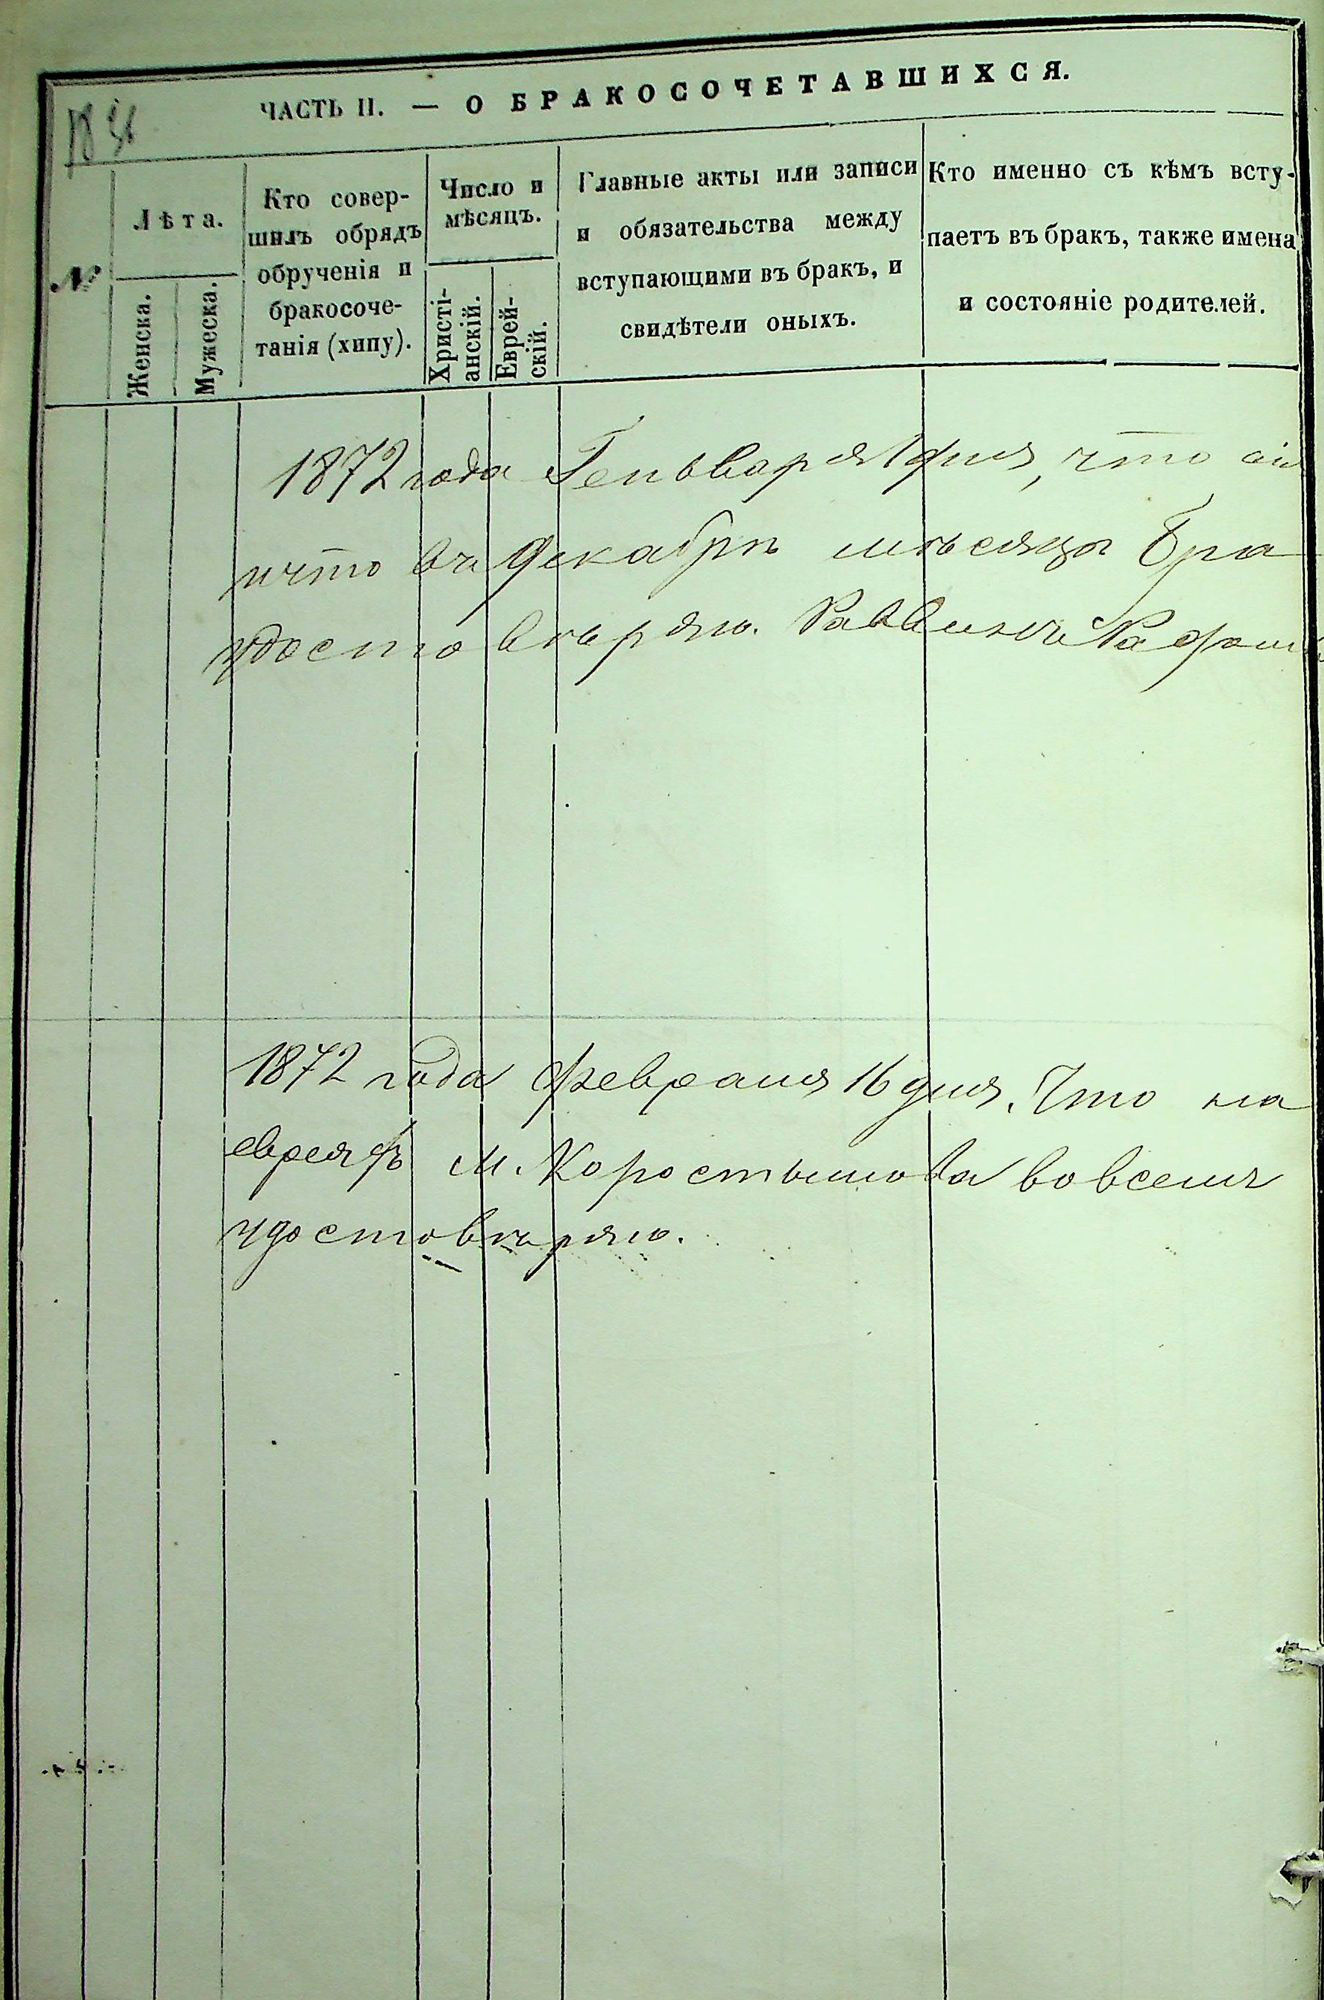 ЧАСТЬ II. — О БРАКОСОЧЕТАВШИХСЯ.
№
Лѣта.
Женска.
Мужеска.
Кто совер-
шилъ обрядъ
обрученія и
бракосоче-
танія (хипу).
Число и
мѣсяцъ.
Христі-
анскій.
Еврей-
скій.
Главные акты или записи
и обязательства между
вступающими въ бракъ, и
свидѣтели оныхъ.
Кто именно съ кѣмъ всту-
паетъ въ бракъ, также имена
и состояніе родителей.
1872 года Генваря 1 дня, что сія
что въ Декабрѣ мѣсяцѣ Бра
удостовѣряю. Раввинъ
1872 года Февраля 16 дня. Что на
евреяхъ м. Коростышова во всемъ
удостовѣряю.